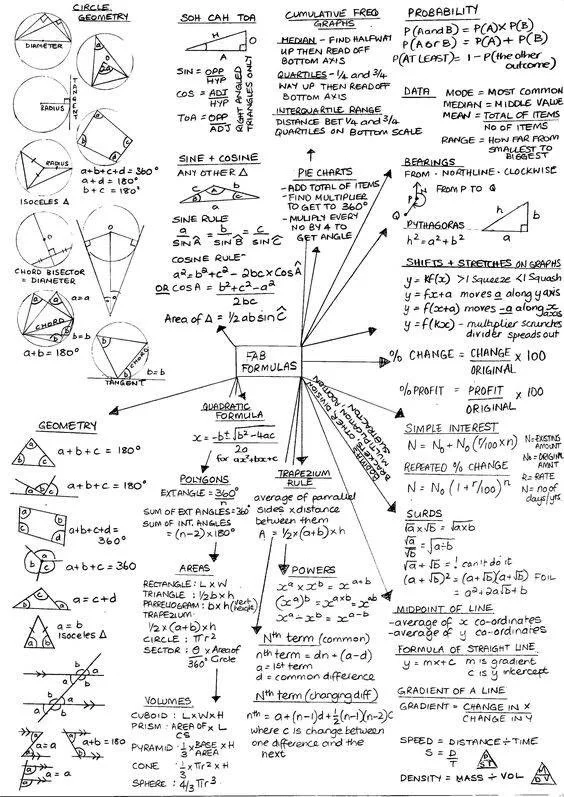 CIRCLE
GEOMETRY
DIAMETER
RADIUS
TANGENT
a+b+c+d = 360°
a+d = 180°
b+c = 180°
RADIUS
ISOCELES Δ
CHORD BISECTOR
= DIAMETER
a=a
b=b
CHORD
a+b = 180°
CHORD
b=b
TANGENT
SOH CAH TOA
H
O
A
SIN = OPP
HYP
COS = ADJ
HYP
TOA = OPP
ADJ
RIGHT ANGLED
TRIANGLES ONLY
SINE + COSINE
ANY OTHER Δ
SINE RULE
a/sinA = b/sinB = c/sinC
COSINE RULE
a² = b²+c² - 2bc x CosA
OR COSA = b²+c²-a²
2bc
Area of Δ = 1/2 ab sin C
CUMULATIVE FREQ
GRAPHS
MEDIAN - FIND HALFWAY
UP THEN READ OFF
BOTTOM AXIS
QUARTILES - 1/4 and 3/4
WAY UP THEN READ OFF
BOTTOM AXIS
INTERQUARTILE RANGE
DISTANCE BET 1/4 and 3/4
QUARTILES ON BOTTOM SCALE
PIE CHARTS
- ADD TOTAL OF ITEMS
- FIND MULTIPLIER
TO GET TO 360°
- MULIPLY EVERY
NO BY 4 TO
GET ANGLE
PROBABILITY
P(A and B) = P(A) x P(B)
P(A or B) = P(A) + P(B)
P(AT LEAST) = 1 - P(the other
outcome)
DATA
MODE = MOST COMMON
MEDIAN = MIDDLE VALUE
MEAN = TOTAL OF ITEMS
NO OF ITEMS
RANGE = HOW FAR FROM
SMALLEST TO
BIGGEST
BEARINGS
FROM · NORTHLINE · CLOCKWISE
N
P
Q
FROM P TO Q
PYTHAGORAS
h² = a² + b²
h
b
a
SHIFTS + STRETCHES ON GRAPHS
y = kf(x) >1 Squeeze <1 Squash
y = fx+a moves a along y axis
y = f(x+a) moves -a along x
axis
y = f(kx) - multiplier scrunches
divider spreads out
FAB
FORMULAS
% CHANGE = CHANGE x 100
ORIGINAL
% PROFIT = PROFIT x 100
ORIGINAL
BRACKETS OTHER DIVISION
MULTIPLICATION ADDITION
SUBTRACTION
SIMPLE INTEREST
N = N₀ + N₀ (r/100 x n)
REPEATED % CHANGE
N = N₀ (1 + r/100)ⁿ
N = EXISTING
AMOUNT
N₀ = ORIGINAL
AMNT
R = RATE
N = no of
days/yrs
SURDS
√a x √b = √axb
√a/√b = √a÷b
√a + √b = ! can't do it
(a+√b)² = (a+√b)(a+√b) FOIL
= a² + 2a√b + b
MIDPOINT OF LINE
- average of x co-ordinates
- average of y co-ordinates
FORMULA OF STRAIGHT LINE
y = mx+c m is gradient
c is y intercept
GRADIENT OF A LINE
GRADIENT = CHANGE IN X
CHANGE IN Y
SPEED = DISTANCE ÷ TIME
S = D
T
D
S T
DENSITY = MASS ÷ VOL
M
D V
GEOMETRY
a+b+c = 180°
a+b+c = 180°
a+b+c+d =
360°
a+b+c = 360
a = c+d
a = b
Isoceles Δ
a=a
a+b = 180
a=a
QUADRATIC
FORMULA
x = -b±√b²-4ac
2a
for ax²+bx+c
POLYGONS
EXT ANGLE = 360°
n
SUM OF EXT ANGLES = 360°
SUM OF INT. ANGLES
= (n-2) x 180°
AREAS
RECTANGLE : L x W
TRIANGLE : 1/2 b x h
PARRELOGRAM : b x h (vert
height)
TRAPEZIUM
1/2 x (a+b) x h
CIRCLE : πr²
SECTOR : θ x Area of
360° Circle
VOLUMES
CUBOID : L x W x H
PRISM : AREA OF x L
CS
PYRAMID : 1/3 x BASE x H
AREA
CONE : 1/3 x πr² x H
SPHERE : 4/3 πr³
TRAPEZIUM
RULE
average of parrallel
sides x distance
between them
A = 1/2 x (a+b) x h
POWERS
xᵃ x xᵇ = xᵃ⁺ᵇ
(xᵃ)ᵇ = xᵃˣᵇ = xᵃᵇ
xᵃ ÷ xᵇ = xᵃ⁻ᵇ
Nth term (common)
nth term = dn + (a-d)
a = 1st term
d = common difference
Nth term (changing diff)
nth = a + (n-1)d + 1/2(n-1)(n-2)c
where c is change between
one difference and the
next